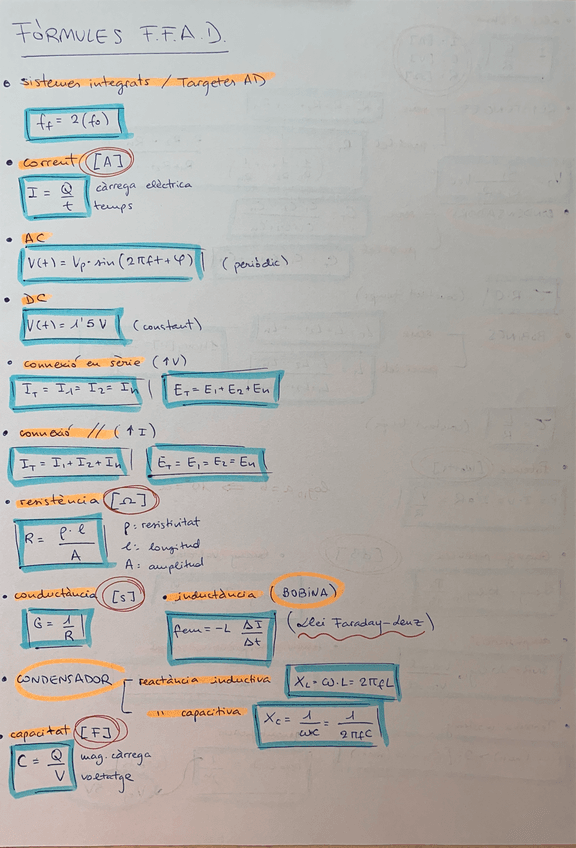 FÒRMULES F.F.A.D.
• sistemes integrats / Targetes AD
ff = 2(fo)
• corrent [A]
I = Q/t càrrega elèctrica
temps
• AC
V(t) = Vp · sin (2πft + φ) (periòdic)
• DC
V(t) = 1'5 V (constant)
• connexió en sèrie (↑V)
IT = I1 = I2 = In | ET = E1 + E2 + En
• connexió // (↑I)
IT = I1 + I2 + In | ET = E1 = E2 = En
• resistència [Ω]
R = ρ · l / A
ρ: resistivitat
l: longitud
A: amplitud
• conductància [S] • inductància (BOBINA)
G = 1/R fem = -L ΔI/Δt (Llei Faraday-Lenz)
• CONDENSADOR reactància inductiva XL = ω·L = 2πfL
" capacitiva XC = 1/ωC = 1/2πfC
• capacitat [F]
C = Q/V mag. càrrega
voltatge